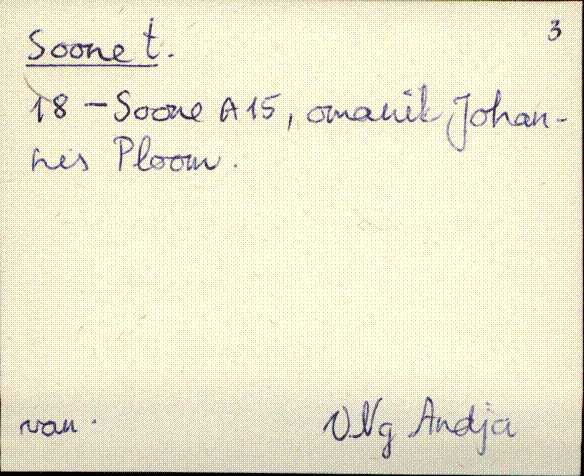 3
Soone t.
18 - Soone A 15, omanik Johan-
nes Ploom.
van. VNg Andja